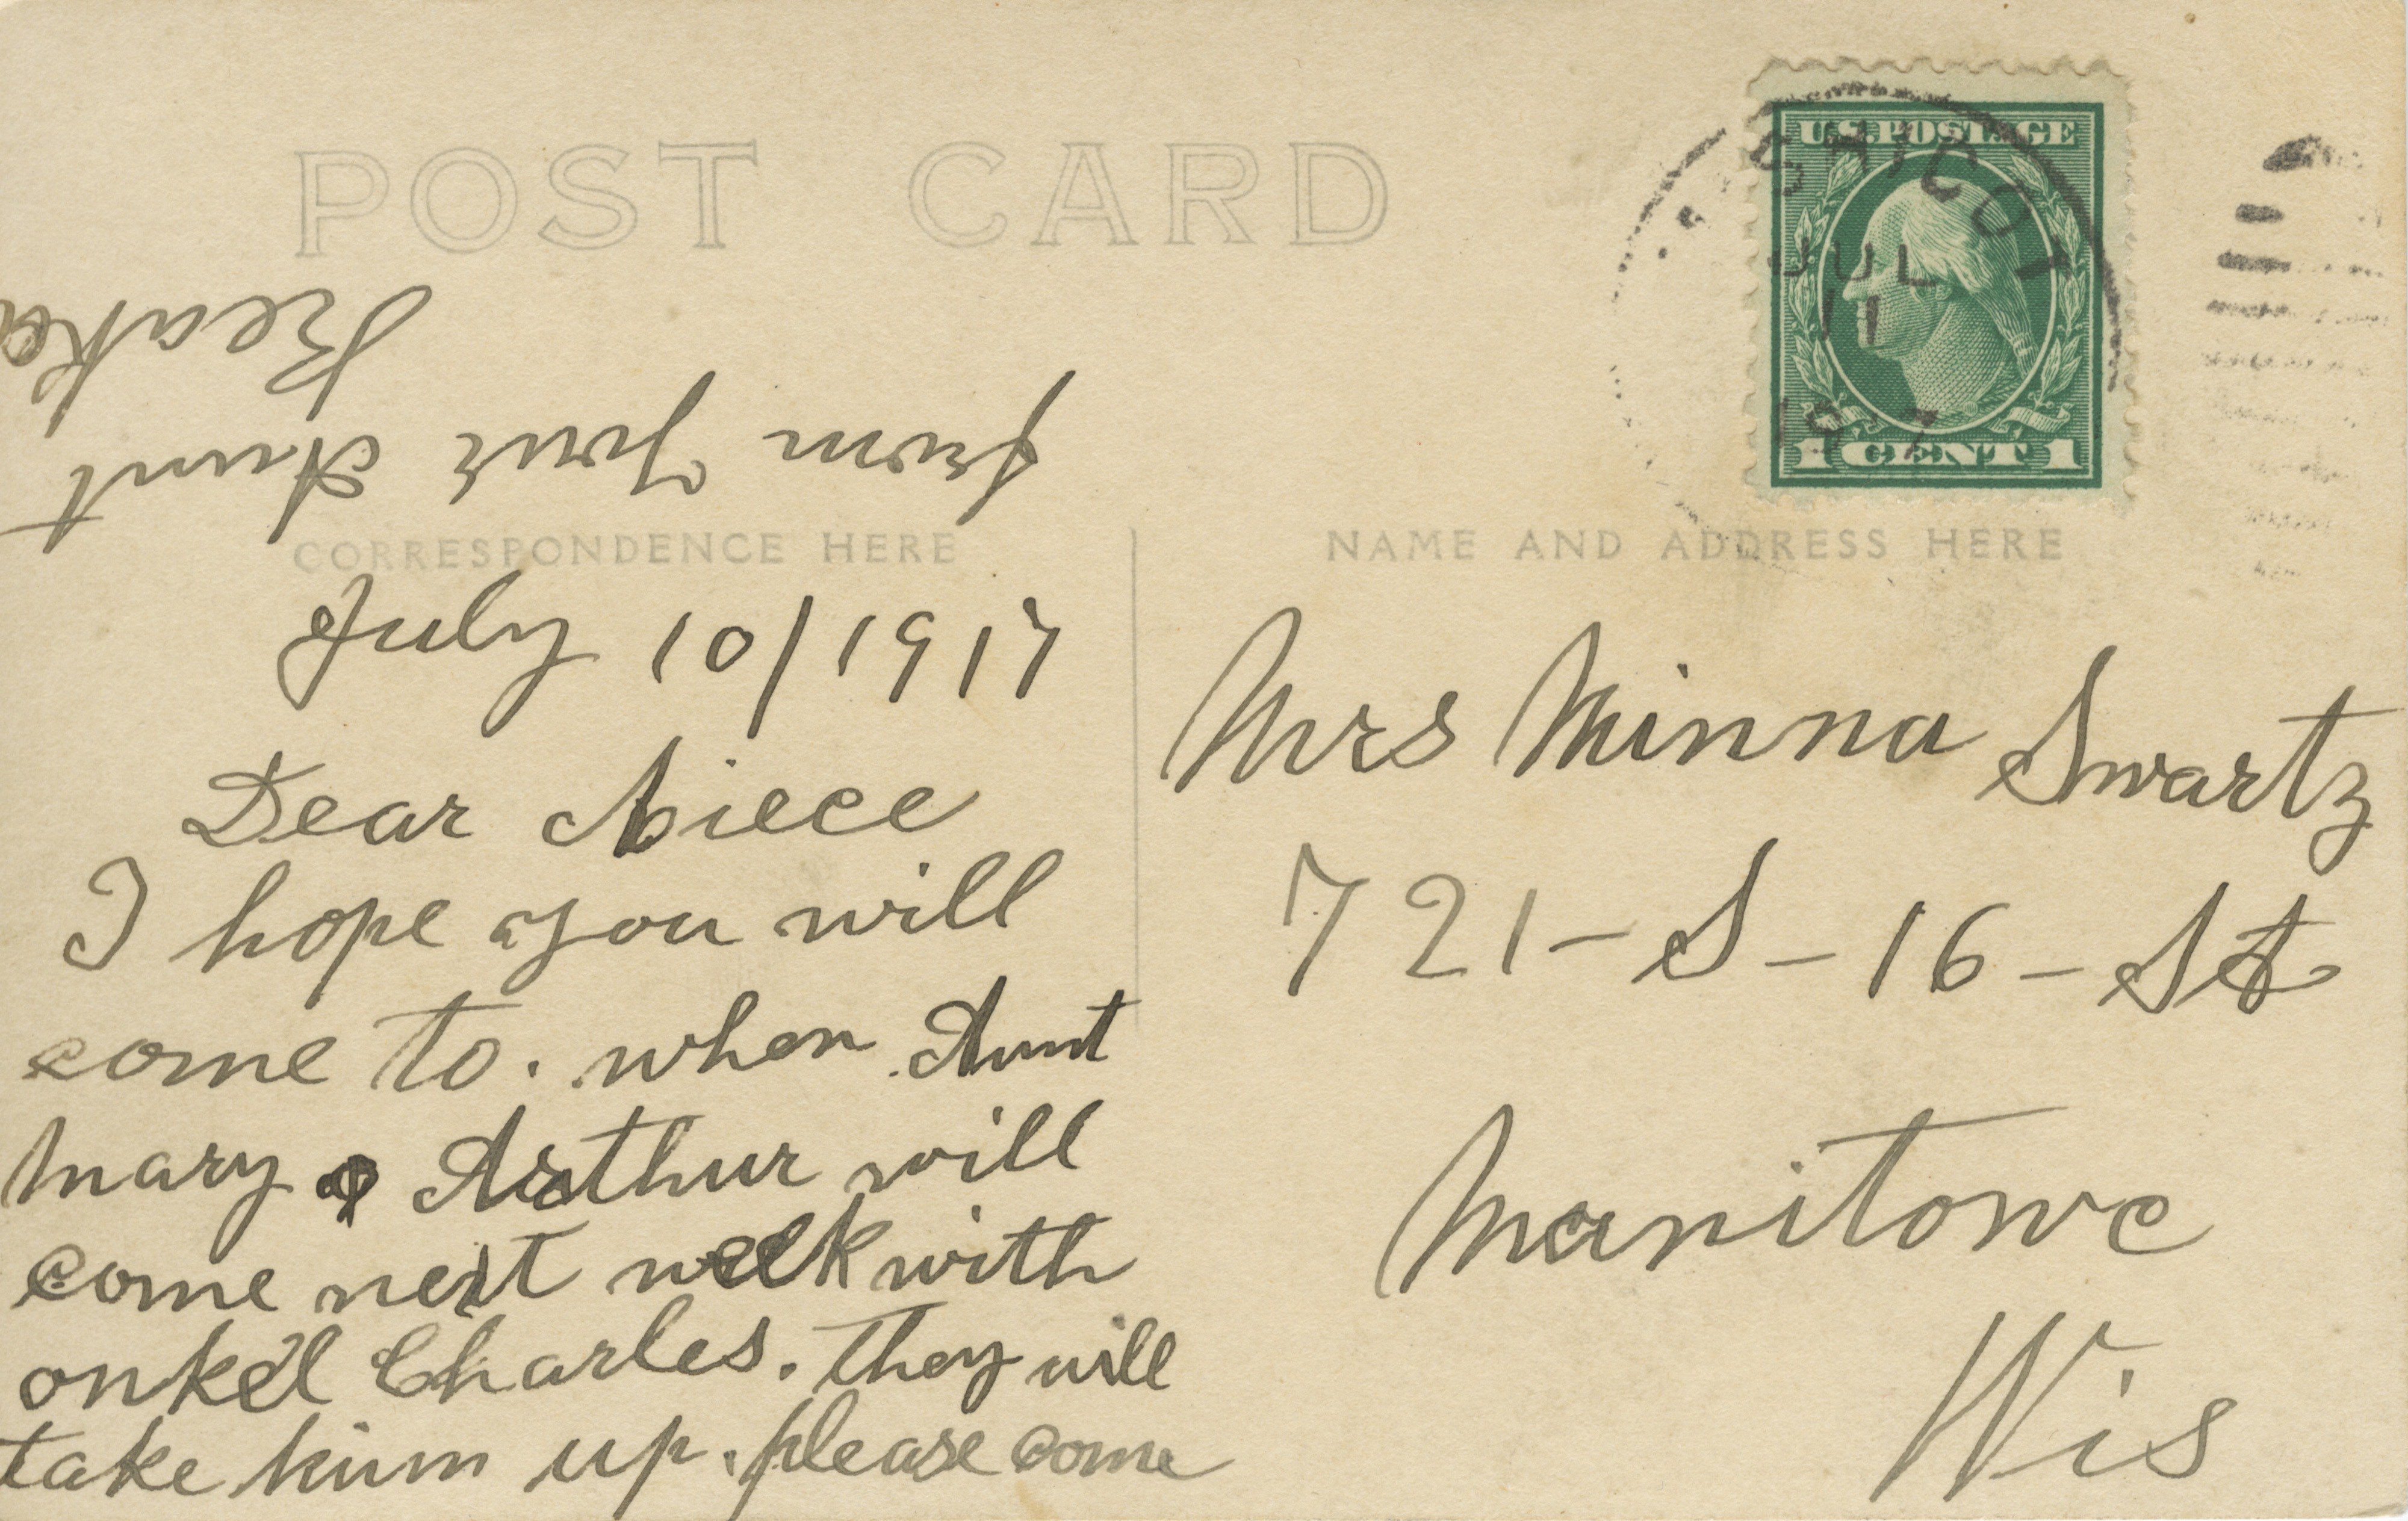 POST CARD
CORRESPONDENCE HERE
July 10/1917
Dear Niece
I hope you will
come to. when Aunt
Mary & Arthur will
come next week with
onkel Charles. They will
take him up. please come
from Your Aunt
NAME AND ADDRESS HERE
Mrs Minna Swartz
721-S-16-St
Manitowc
Wis
U.S. POSTAGE
1 CENT 1
JUL
11